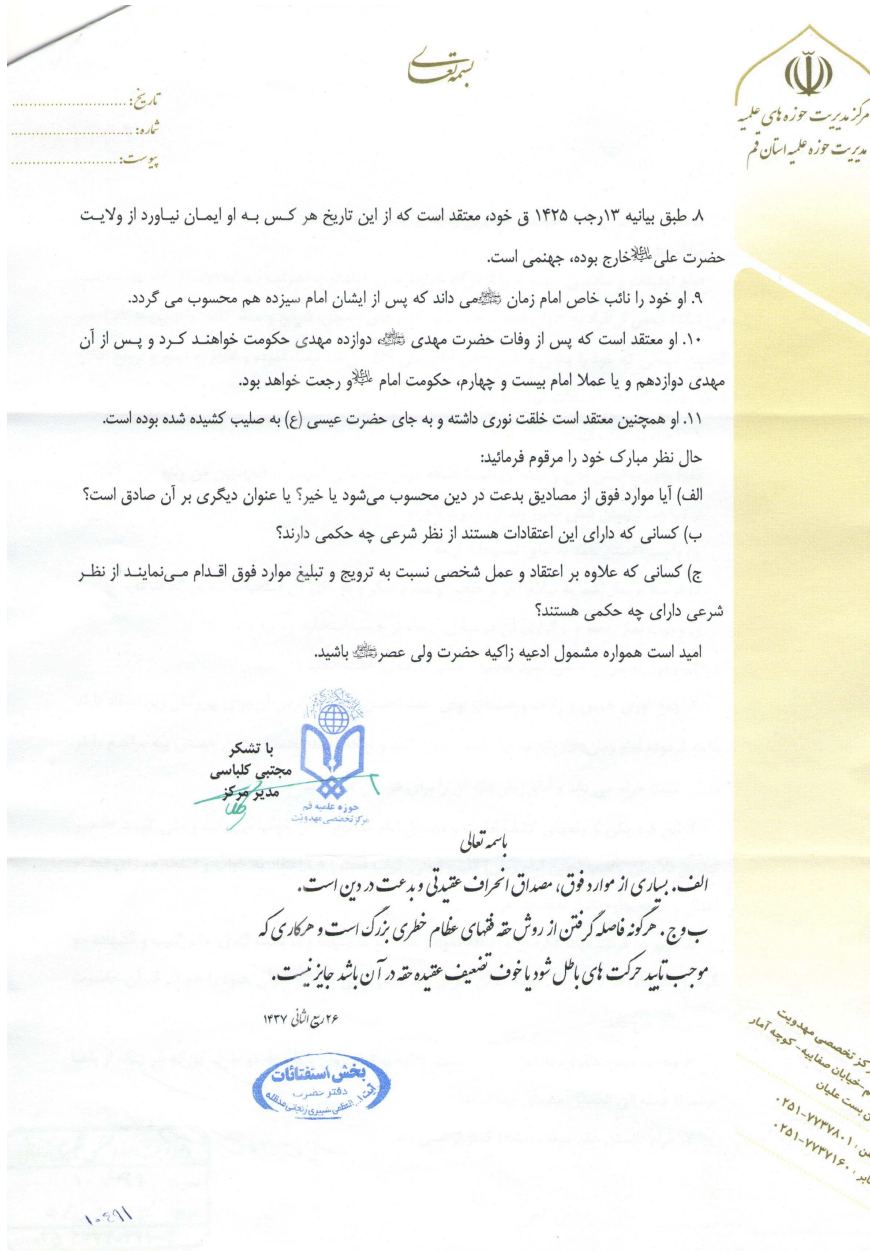 بسمه تعالی
مرکز مدیریت حوزه های علمیه
مدیریت حوزه علمیه استان قم
تاریخ:
شماره:
پیوست:
۸. طبق بیانیه ۱۳رجب ۱۴۲۵ ق خود، معتقد است که از این تاریخ هر کس به او ایمان نیاورد از ولایت
حضرت علی علیه‌السلام خارج بوده، جهنمی است.
۹. او خود را نائب خاص امام زمان می داند که پس از ایشان امام سیزده هم محسوب می گردد.
۱۰. او معتقد است که پس از وفات حضرت مهدی ، دوازده مهدی حکومت خواهند کرد و پس از آن
مهدی دوازدهم و یا عملا امام بیست و چهارم، حکومت امام علیه‌السلام و رجعت خواهد بود.
۱۱. او همچنین معتقد است خلقت نوری داشته و به جای حضرت عیسی (ع) به صلیب کشیده شده بوده است.
حال نظر مبارک خود را مرقوم فرمائید:
الف) آیا موارد فوق از مصادیق بدعت در دین محسوب می‌شود یا خیر؟ یا عنوان دیگری بر آن صادق است؟
ب) کسانی که دارای این اعتقادات هستند از نظر شرعی چه حکمی دارند؟
ج) کسانی که علاوه بر اعتقاد و عمل شخصی نسبت به ترویج و تبلیغ موارد فوق اقدام می‌نمایند از نظر
شرعی دارای چه حکمی هستند؟
امید است همواره مشمول ادعیه زاکیه حضرت ولی عصر باشید.
با تشکر
مجتبی کلباسی
مدیر مرکز
حوزه علمیه قم
مرکز تخصصی مهدویت
باسمه تعالی
الف. بسیاری از موارد فوق، مصداق انحراف عقیدتی و بدعت در دین است.
ب و ج. هرگونه فاصله گرفتن از روش حقه فقهای عظام خطری بزرگ است و هرکاری که
موجب تایید حرکت های باطل شود یا خوف تضعیف عقیده حقه در آن باشد جایز نیست.
۲۶ ربیع الثانی ۱۴۳۷
بخش استفتائات
دفتر حضرت
آیت ا... العظمی شبیری زنجانی مدظله
مرکز تخصصی مهدویت
قم-خیابان صفاییه- کوچه آمار
بن بست علیان
۰۲۵۱-۷۷۳۷۸۰۱
۰۲۵۱-۷۷۳۷۱۶۰
۱۰۴۹۱